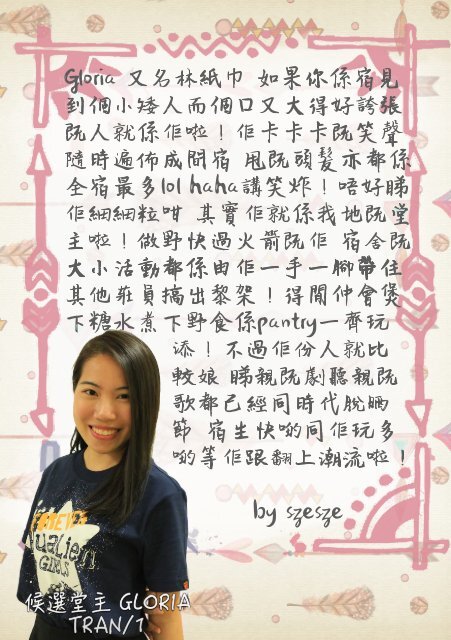 Gloria 又名林紙巾 如果你係宿見
到個小矮人而個口又大得好誇張
既人就係佢啦！佢卡卡卡既笑聲
隨時遍佈成間宿 甩既頭髮亦都係
全宿最多lol haha講笑炸！唔好睇
佢細細粒咁 其實佢就係我地既堂
主啦！做野快過火箭既佢 宿舍既
大小活動都係由佢一手一腳帶住
其他莊員搞出黎架！得閒仲會煲
下糖水煮下野食係pantry一齊玩
添！不過佢份人就比
較娘 睇親既劇聽親既
歌都已經同時代脫晒
節 宿生快啲同佢玩多
啲等佢跟翻上潮流啦！
by szesze
GIRLS
候選堂主 GLORIA
TRAN/1